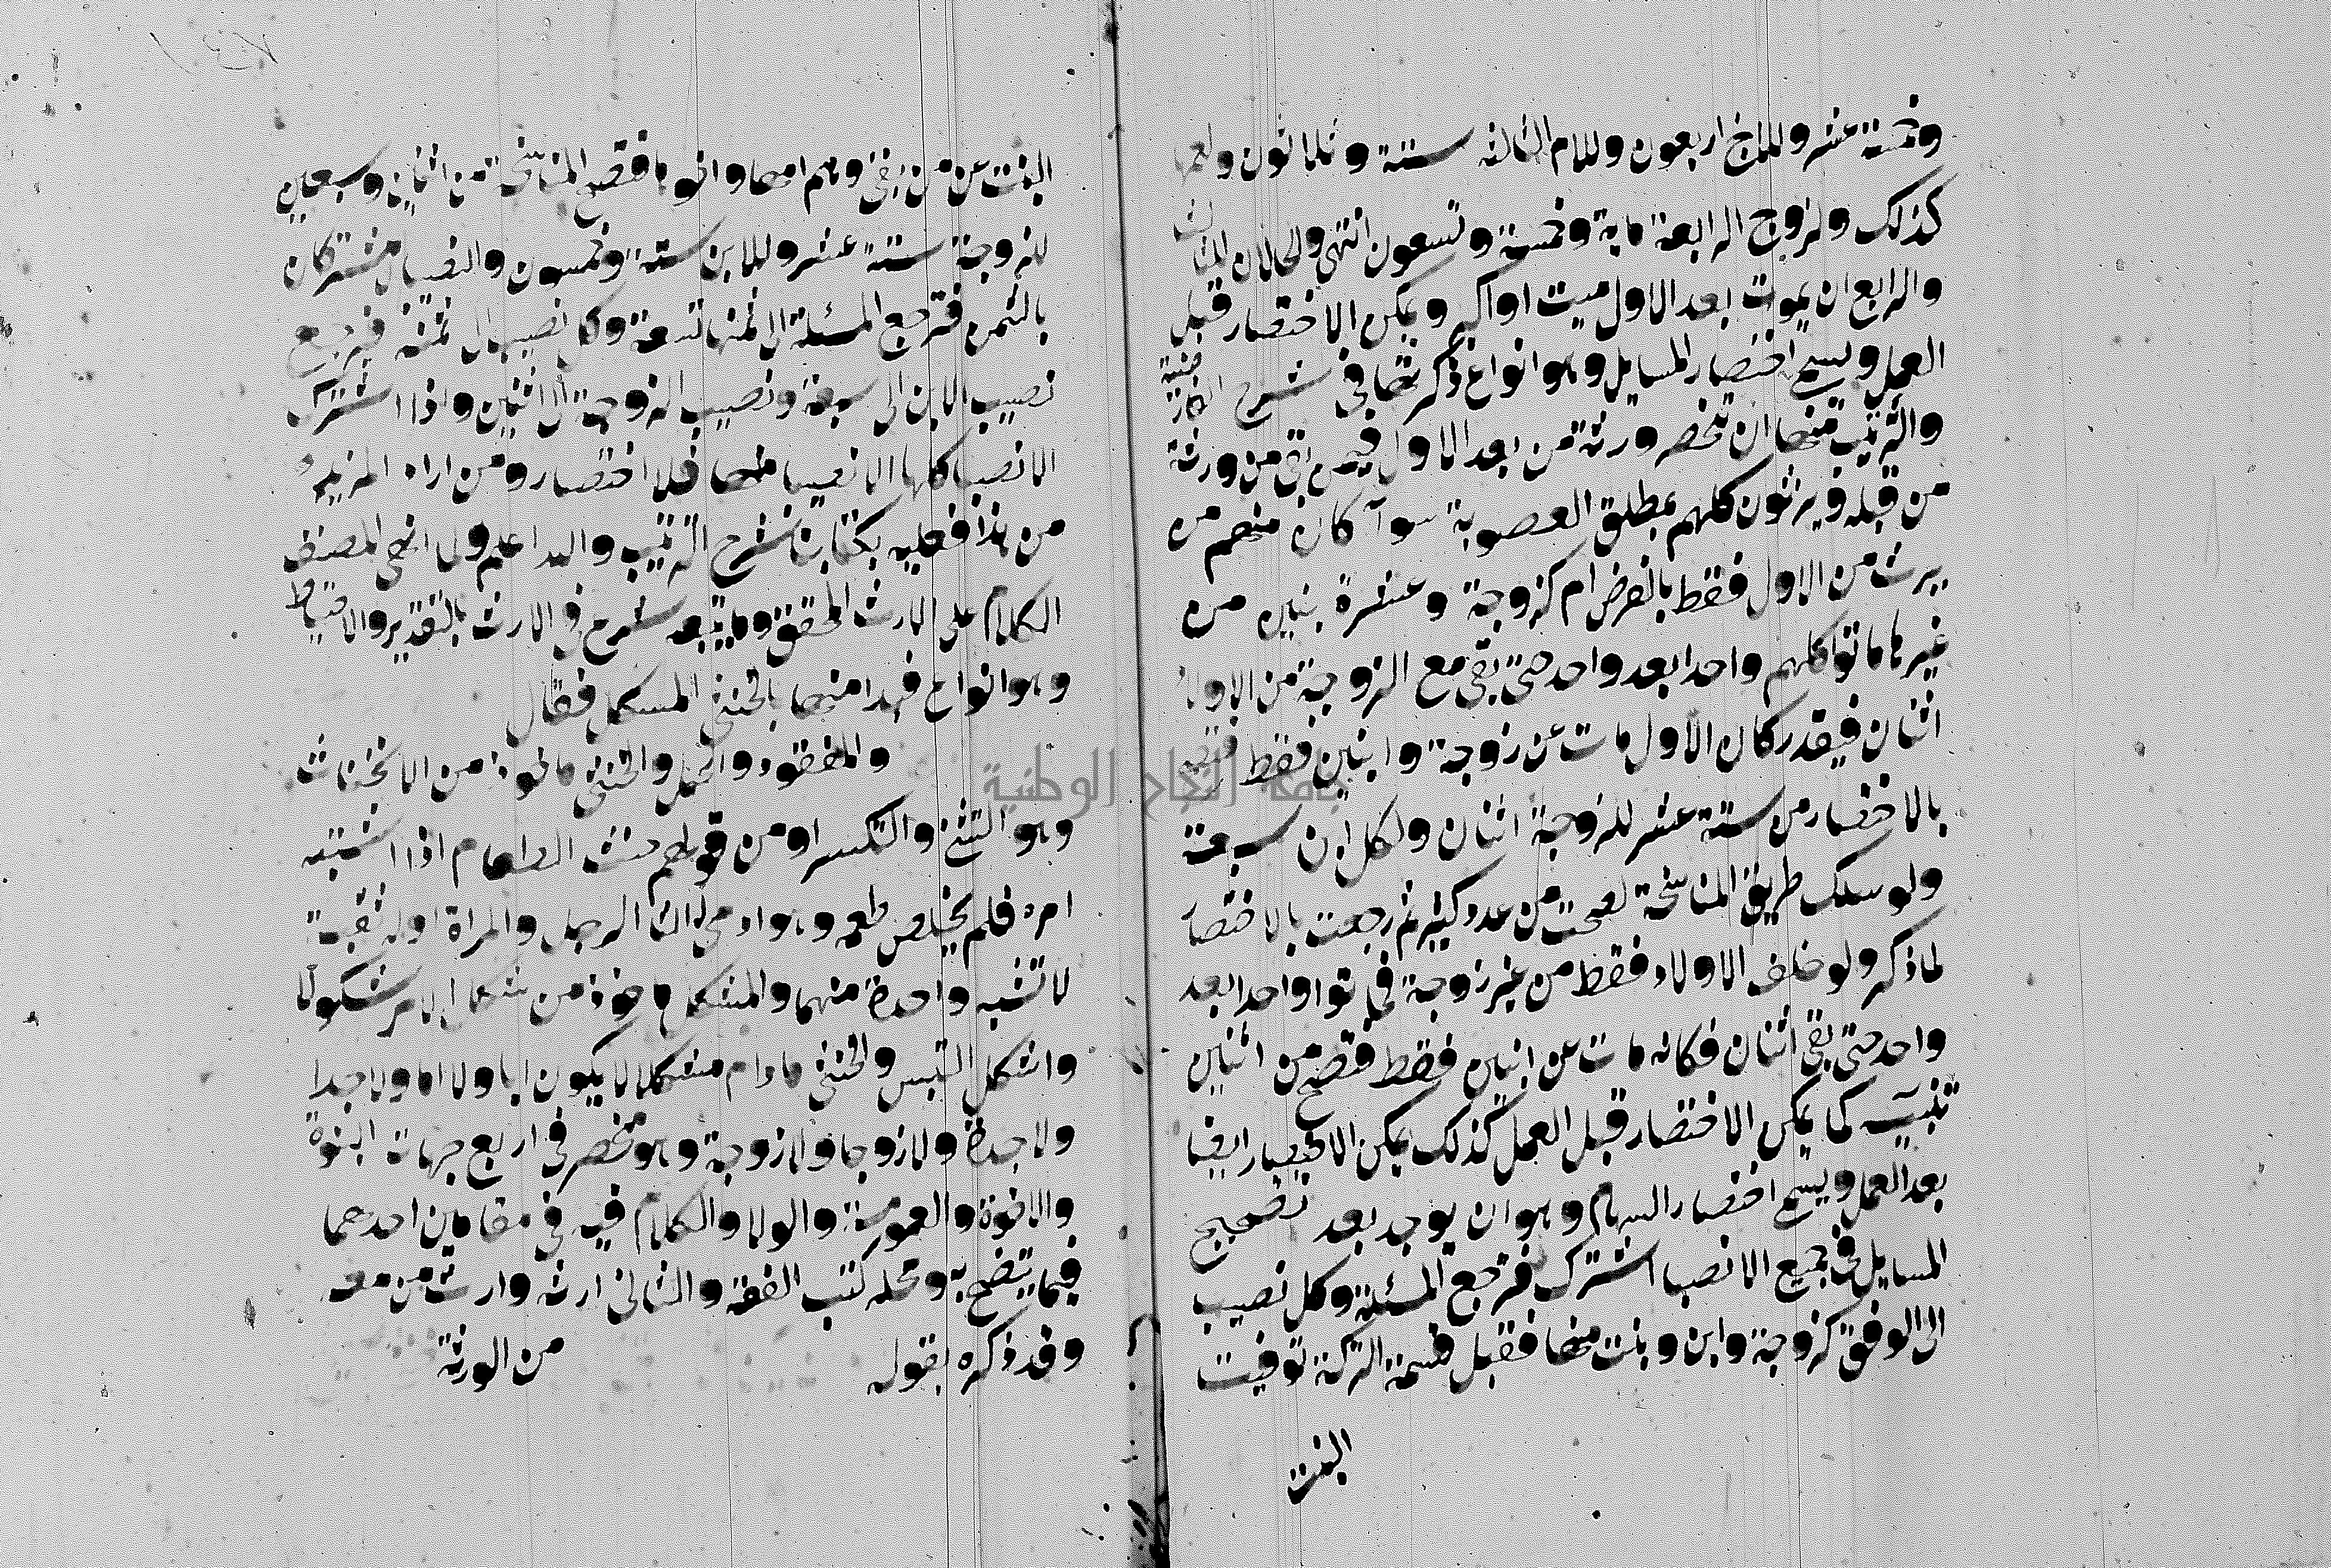 وخمسة عشر وللاخ اربعون وللام الثالثة ستة وثلاثون ولعمها
كذلك ولزوج الرابعة ماية وخمسة وتسعون انتهى والحالان الثالث
والرابع ان يموت بعد الاول ميت او اكثر ويمكن الاختصار قبل
العمل ويسمى اختصار المسايل وهو انواع ذكرتها في شرح
والترتيب منها ان تنحصر ورثة من بعد الاول فيمن بقي من ورثة
من قبله ويرثون كلهم بمطلق العصوبة سوآ كان منهم من
يرث من الاول فقط بالفرض ام كزوجة وعشرة بنين من
غيرها ماتوا كلهم واحدا بعد واحد حتى بقي مع الزوجة من الاولاد
اثنان فيقدر كان الاول مات عن زوجة وابنين فقط فتصح
بالاختصار من ستة عشر للزوجة اثنان ولكل ابن سبعة
ولو سلك طريق المناسخة لصحت من عدد كثير ثم رجعت بالاختصار
لما ذكر ولو خلف الاولاد فقط من غير زوجة فماتوا واحدا بعد
واحد حتى بقي اثنان فكانه مات عن ابنين فقط فتصح من اثنين
تنبيه كما يمكن الاختصار قبل العمل كذلك يمكن الاختصار ايضا
بعد العمل ويسمى اختصار السهام وهو ان يوجد بعد تصحيح
المسايل في جميع الانصبا اشتراك فترجع المسئلة وكل نصيب
الى الوفق كزوجة وابن وبنت منها فقبل قسمة التركة توفيت
البنت
البنت عن من بقي وهم امها واخوها فتصح المناسخة من اثنين وسبعين
للزوجة ستة عشر وللابن ستة وخمسون والنصيبان مشتركان
بالثمن فترجع المسئلة الى ثمنها تسعة وكل نصيب الى ثمنه فيرجع
نصيب الابن الى سبعة ونصيب الزوجة الى اثنين واذا اشترك
الانصبا كلها الا نصيبا منها فلا اختصار ومن اراد المزيد
من هذا فعليه بكتابنا شرح الترتيب والله اعلم ولما انهى المصنف
الكلام على الارث المحقق وما يتبعه شرع في الارث بالتقدير والاحتياط
وهو انواع فبدا منها بالخنثى المشكل فقال
والمفقود والحمل والخنثى ماخوذ من الانخناث
وهو التثني والتكسر او من قولهم خنث الطعام اذا اشتبه
امره فلم يخلص طعمه وهو ادمي له التا الرجل والمراة او له ثقبة
لا تشبه واحدة منهما والمشكل ماخوذ من شكل الامر شكولا
واشكل التبس والخنثى ما دام مشكلا لا يكون ابا ولا اما ولا جدا
ولا جدة ولا زوجا ولا زوجة وهو منحصر في اربع جهات البنوة
والاخوة والعمومة والولا والكلام فيه في مقامين احدهما
فيما يتضح به ومحله كتب الفقه والثاني ارثه وارث من معه
وقد ذكره بقوله من الورثة
جامعة النجاح الوطنية